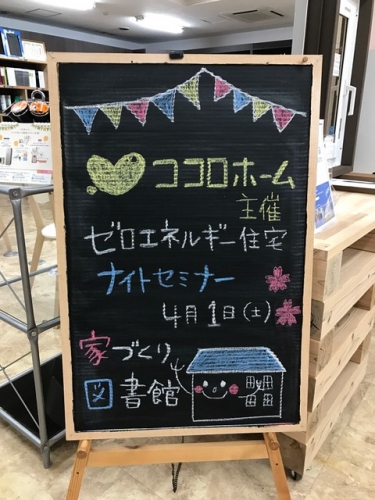 ココロホーム
主催
ゼロエネルギー住宅
ナイトセミナー
4月1日(土)
家づくり
図書館